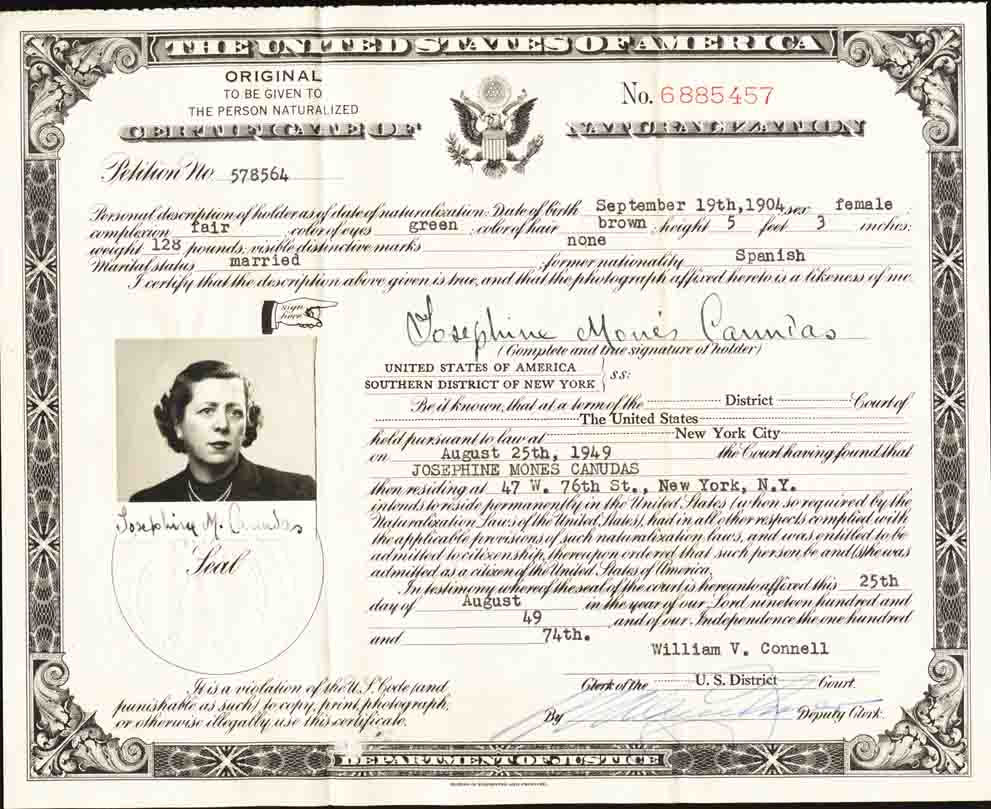 THE UNITED STATES OF AMERICA
ORIGINAL
TO BE GIVEN TO
THE PERSON NATURALIZED
No. 6885457
CERTIFICATE OF NATURALIZATION
Petition No 578564
Personal description of holder as of date of naturalization: Date of birth September 19th, 1904 sex female
complexion fair color of eyes green color of hair brown height 5 feet 3 inches;
weight 128 pounds, visible distinctive marks none
Marital status married former nationality Spanish
I certify that the description above given is true, and that the photograph affixed hereto is a likeness of me.
sign here
Josephine Monés Canudas
(Complete and true signature of holder)
UNITED STATES OF AMERICA
SOUTHERN DISTRICT OF NEW YORK } ss:
Be it known, that at a term of the District Court of
The United States
held pursuant to law at New York City
on August 25th, 1949 the Court having found that
JOSEPHINE MONES CANUDAS
then residing at 47 W. 76th St., New York, N.Y.
intends to reside permanently in the United States (when so required by the
Naturalization Laws of the United States), had in all other respects complied with
the applicable provisions of such naturalization laws, and was entitled to be
admitted to citizenship, thereupon ordered that such person be and (s)he was
admitted as a citizen of the United States of America.
Josephine M. Canudas
Seal
In testimony whereof the seal of the court is hereunto affixed this 25th
day of August in the year of our Lord nineteen hundred and
49 and of our Independence the one hundred
and 74th.
William V. Connell
Clerk of the U. S. District Court.
By Deputy Clerk.
It is a violation of the U.S. Code (and
punishable as such) to copy, print, photograph,
or otherwise illegally use this certificate.
DEPARTMENT OF JUSTICE